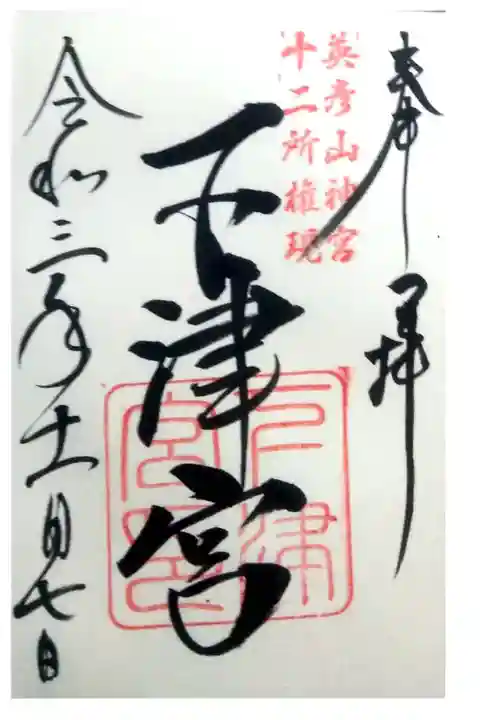 奉拝
英彦山神宮
十二所権現
下津宮
下津宮印
令和三年十一月七日